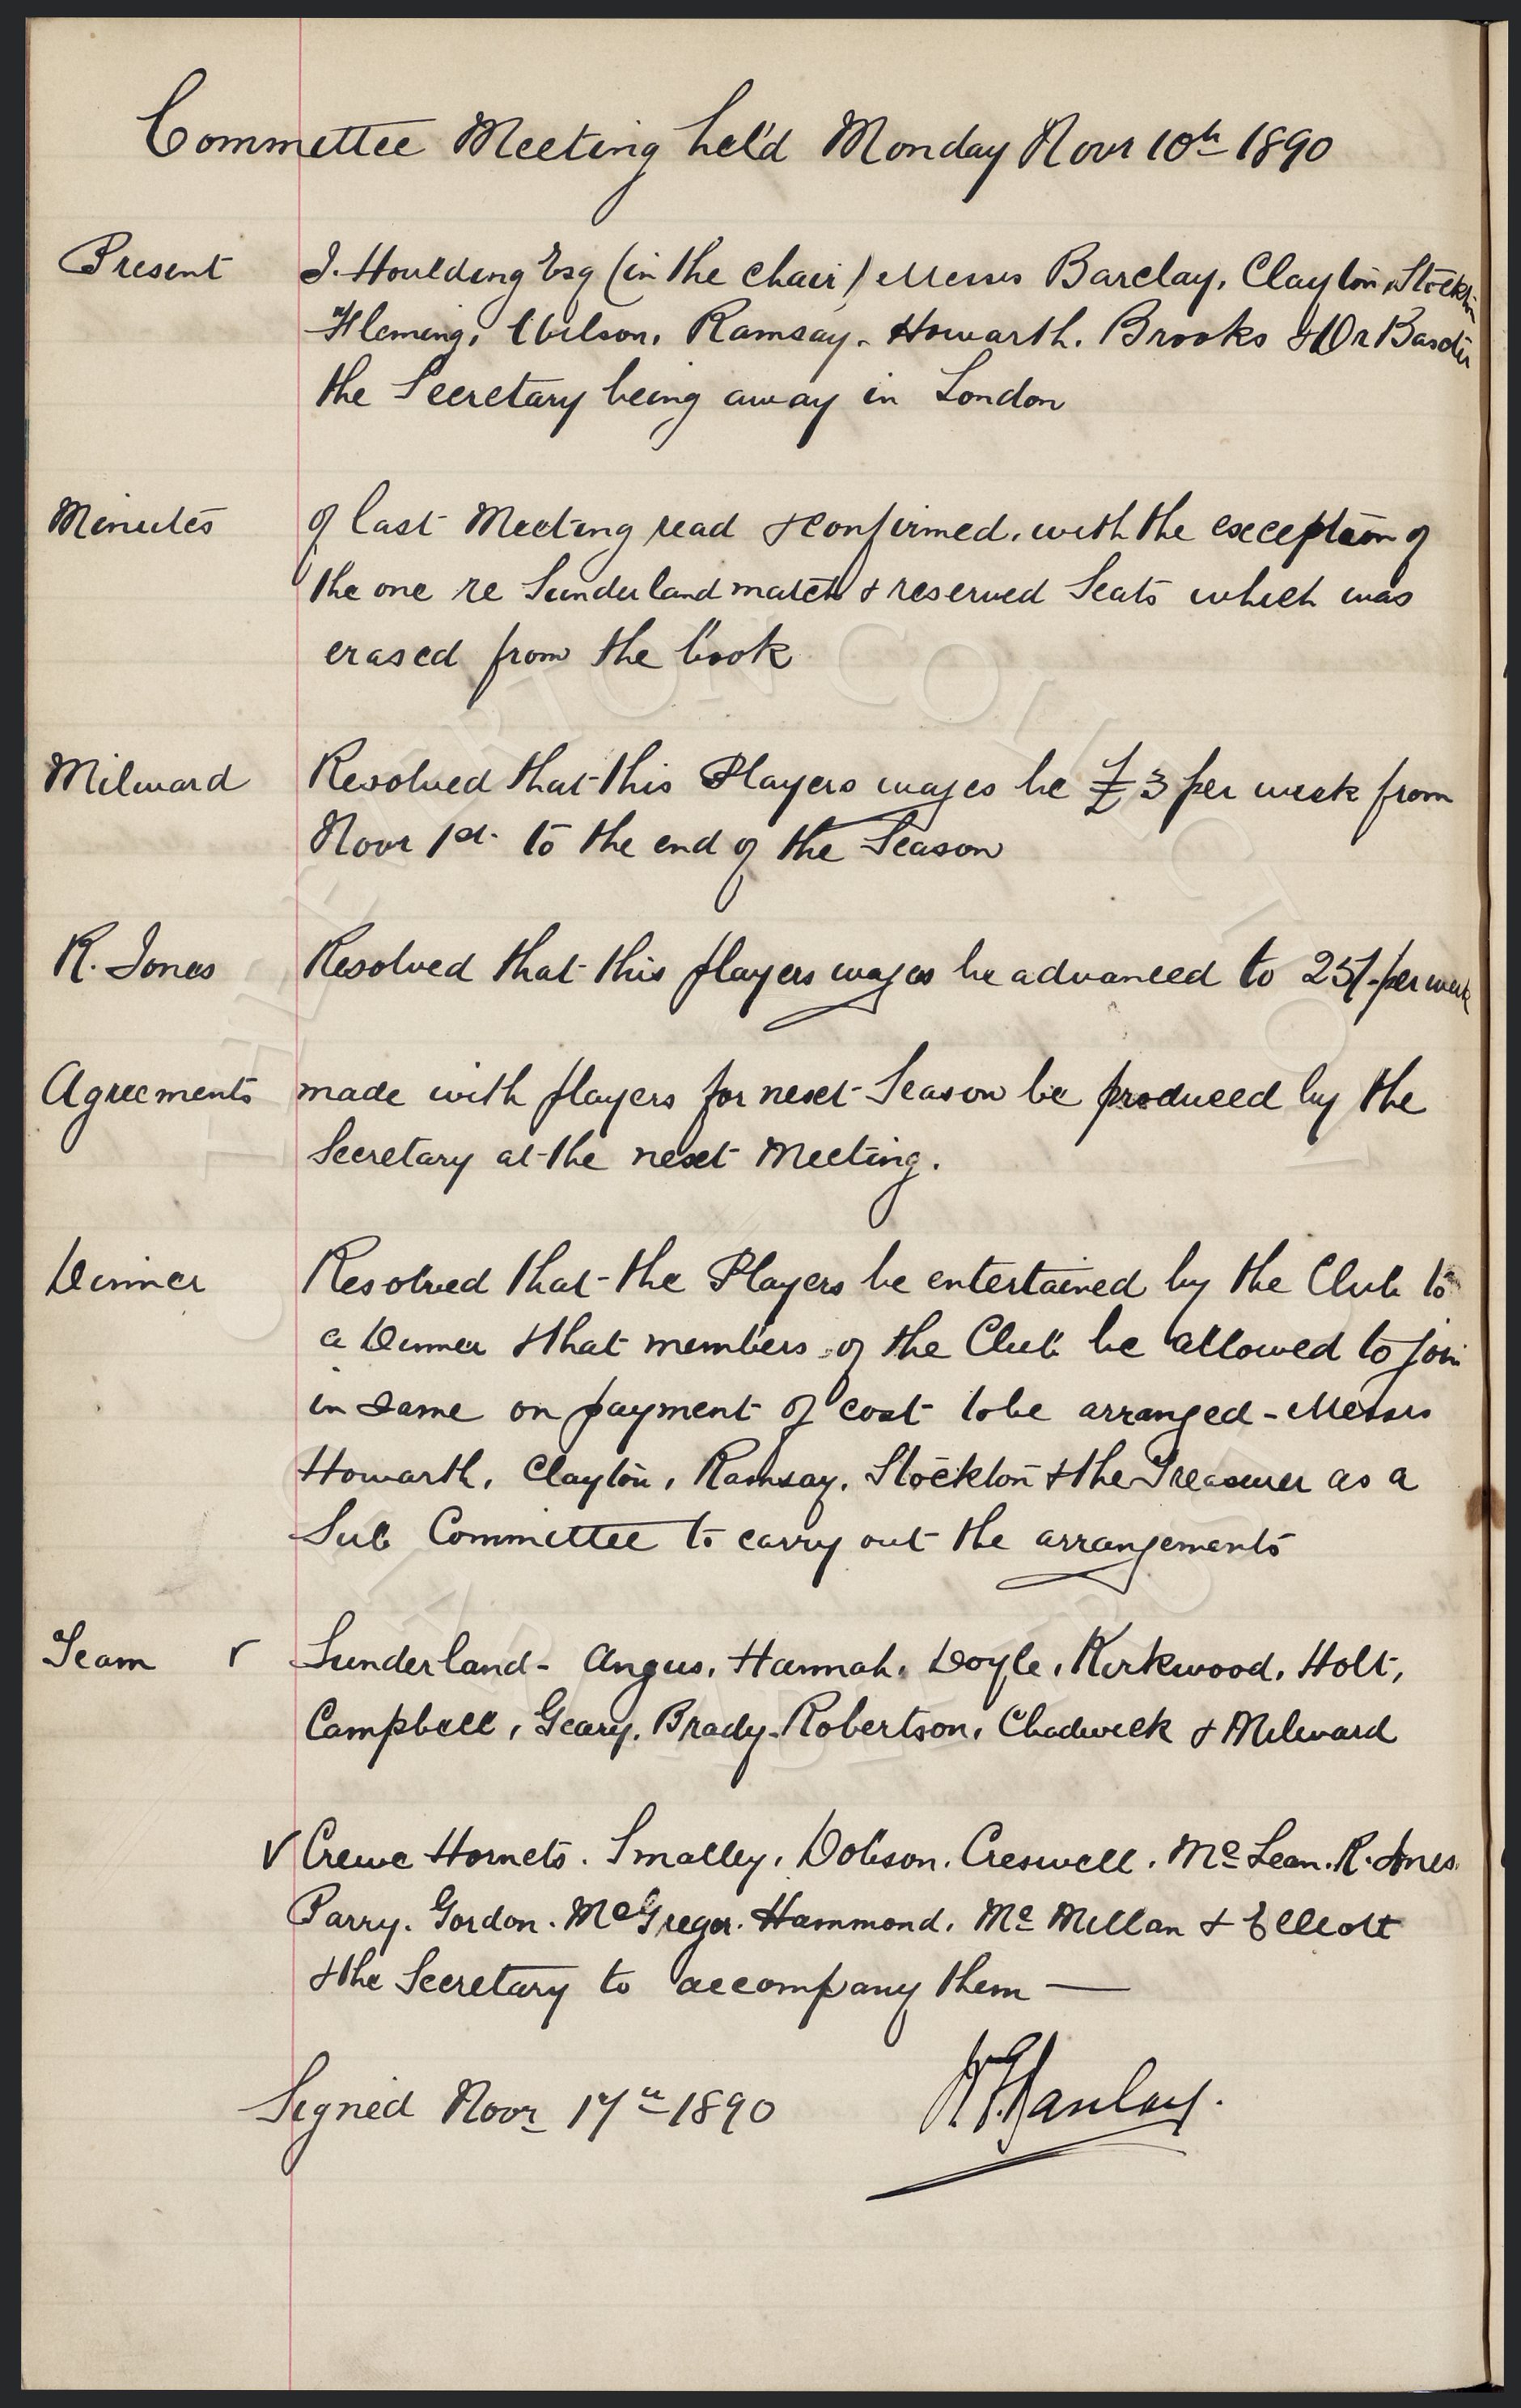 Committee Meeting held Monday Novr 10th 1890
Present J. Houlding Esq (in the chair) Messrs Barclay, Clayton, Stockton
Fleming, Wilson, Ramsay, Howarth, Brooks & Dr Baxter
the Secretary being away in London
Minutes of last Meeting read & confirmed, with the exception of
the one re Sunderland match & reserved Seats which was
erased from the book
Milward Resolved that this Players wages be £3 per week from
Novr 1st to the end of the Season
R. Jones Resolved that this players wages be advanced to 25/- per week
Agreements made with players for next Season be produced by the
Secretary at the next Meeting.
Dinner Resolved that the Players be entertained by the Club to
a Dinner & that members of the Club be allowed to join
in same on payment of cost to be arranged - Messrs
Howarth, Clayton, Ramsay, Stockton & the Treasurer as a
Sub Committee to carry out the arrangements
Team v Sunderland - Angus, Hannah, Doyle, Kirkwood, Holt,
Campbell, Geary, Brady, Robertson, Chadwick & Milward
v Crewe Hornets. Smalley, Dobson, Creswell, Mc Lean, R. Jones
Parry, Gordon, McGregor, Hammond, Mc Millan & Elliott
& the Secretary to accompany them —
Signed Novr 17th 1890
THE EVERTON COLLECTION